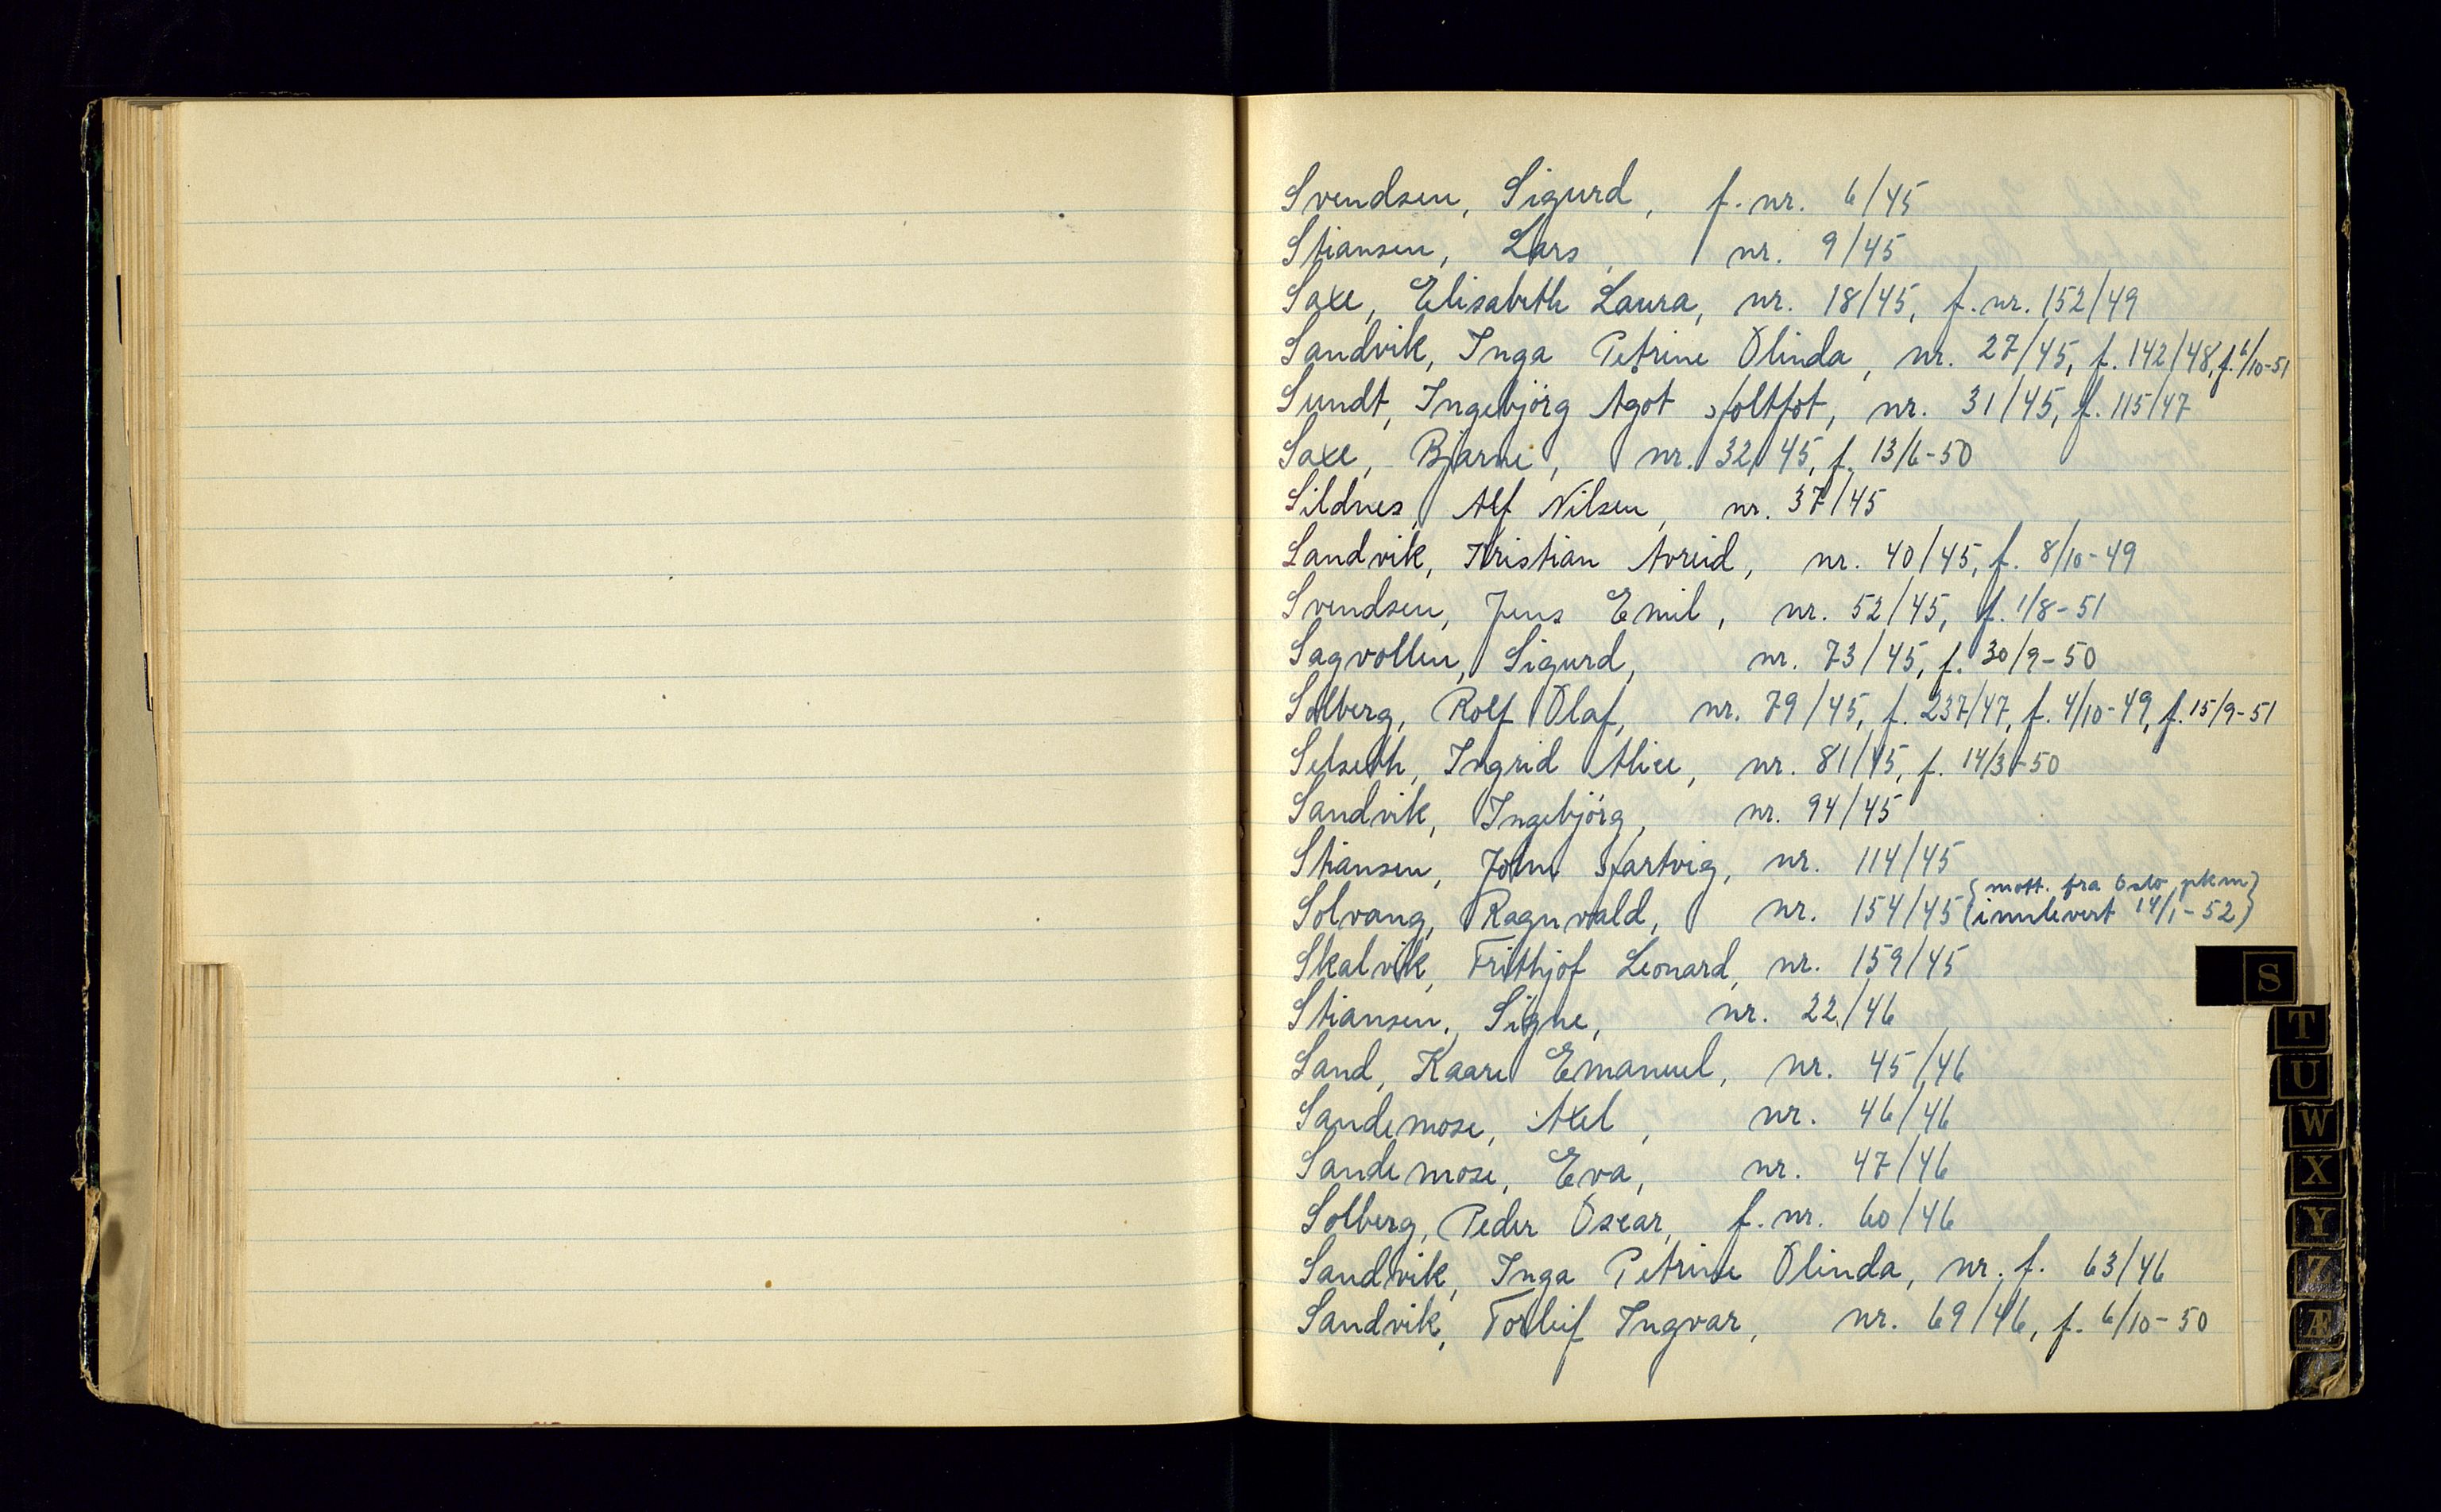 Svendsen, Sigurd, f. nr. 6/45
Stiansen, Lars, nr. 9/45
Saxe, Elisabeth Laura, nr. 18/45, f. nr. 152/49
Sandvik, Inga Petrine Olinda, nr. 27/45, f. 142/48, f. 6/10-51
Sundt, Ingebjörg Agot Holtfot, nr. 31/45, f. 115/47
Saxe, Bjarne, nr. 32/45, f. 13/6-50
Sildnes, Alf Nilsen, nr. 37/45
Sandvik, Kristian Avreid, nr. 40/45, f. 8/10-49
Svendsen, Jens Emil, nr. 52/45, f. 1/8-51
Sagvollen, Sigurd, nr. 73/45, f. 30/9-50
Solberg, Rolf Olaf, nr. 79/45, f. 237/47, f. 4/10-49, f. 15/9-51
Selseth, Ingrid Alice, nr. 81/45, f. 14/3-50
Sandvik, Ingebjörg, nr. 94/45
Stiansen, John Hartvig, nr. 114/45
Solvang, Ragnvald, nr. 154/45 (mott. fra Oslo pkm)
(innlevert 14/1-52)
Skalvik, Frithjof Leonard, nr. 159/45
Stiansen, Signe, nr. 22/46
Sand, Kaare Emanuel, nr. 45/46
Sandemose, Axel, nr. 46/46
Sandemose, Eva, nr. 47/46
Solberg, Peder Oscar, f. nr. 60/46
Sandvik, Inga Petrine Olinda, nr. f. 63/46
Sandvik, Torleif Ingvar, nr. 69/46, f. 6/10-50
S
T
U
W
X
Y
Z
Æ